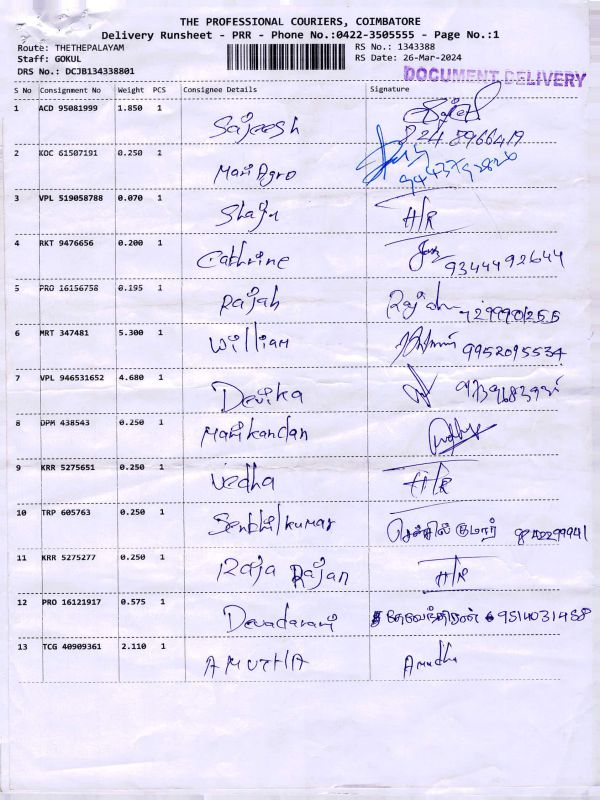 THE PROFESSIONAL COURIERS, COIMBATORE
Delivery Runsheet - PRR - Phone No.:0422-3505555 - Page No.:1
Route: THETHEPALAYAM
Staff: GOKUL
DRS No.: DCJB134338801
RS No.: 1343388
RS Date: 26-Mar-2024
DOCUMENT DELIVERY
S No Consignment No Weight PCS Consignee Details Signature
1 ACD 95081999 1.850 1 Sajeesh
2 KOC 61507191 0.250 1 Mari Agro
3 VPL 519058788 0.070 1 Shaju H/R
4 RKT 9476656 0.200 1 Cathrine 9344492644
5 PRO 16156758 0.195 1 Rajah
6 MRT 347481 5.300 1 William 9952095534
7 VPL 946531652 4.680 1 Devika
8 DPM 438543 0.250 1 Manikandan
9 KRR 5275651 0.250 1 Vedha H/R
10 TRP 605763 0.250 1 Senthilkumar செந்தில் குமார் 9842299941
11 KRR 5275277 0.250 1 Raja Rajan H/R
12 PRO 16121917 0.575 1 9514031458
13 TCG 40909361 2.110 1 AMUTHA Amudha